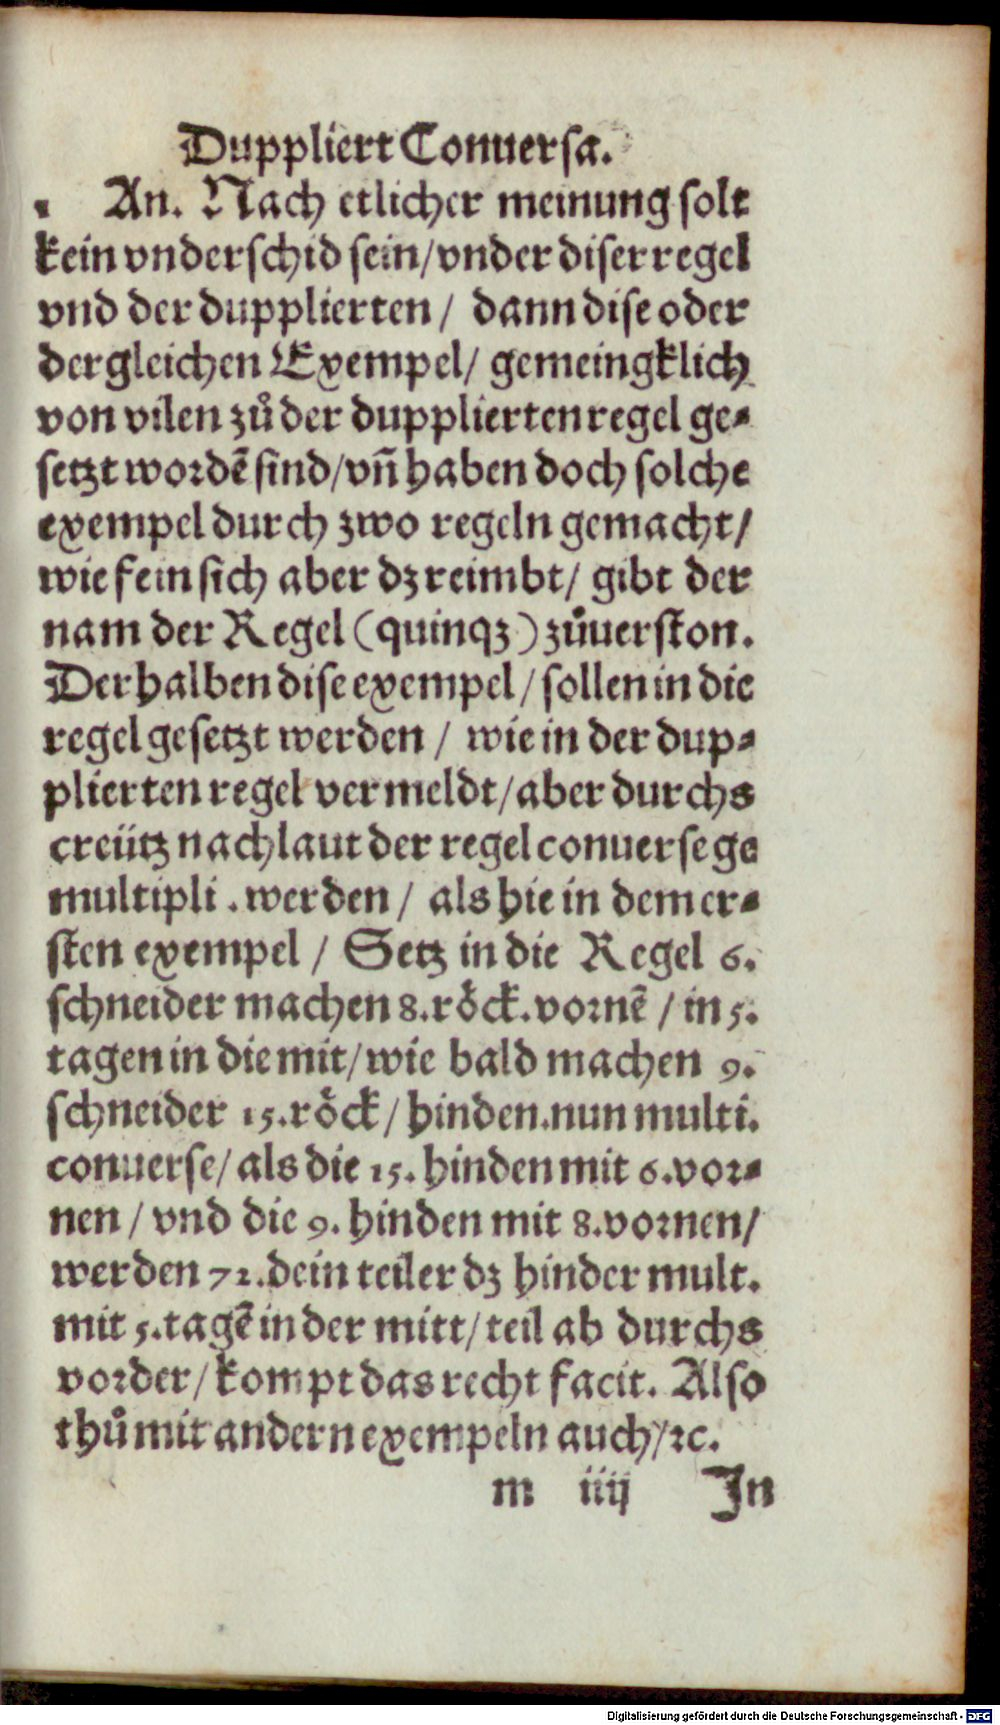 Duppliert Conuersa.
An. Nach etlicher meinung solt
kein vnderschid sein/vnder diser regel
vnd der dupplierten/ dann dise oder
dergleichen Exempel/ gemeingklich
von vilen zů der dupplierten regel ge⸗
setzt wordẽ sind/vñ haben doch solche
exempel durch zwo regeln gemacht/
wie fein sich aber dz reimbt/ gibt der
nam der Regel (quinqz) zůuerston.
Derhalben dise exempel/sollen in die
regel gesetzt werden/ wie in der dup⸗
plierten regel vermeldt/aber durchs
creütz nach laut der regel conuerse ge
multipli. werden/ als hie in dem er⸗
sten exempel/ Setz in die Regel 6.
schneider machen 8. rôck. vornẽ/in 5.
tagen in die mit/wie bald machen 9.
schneider 15. rôck/hinden. nun multi.
conuerse/als die 15. hinden mit 6. vor⸗
nen/vnd die 9. hinden mit 8. vornen/
werden 72. dein teiler dz hinder mult.
mit 5. tagẽ in der mitt/teil ab durchs
vorder/kompt das recht facit. Also
thů mit andern exempeln auch/ꝛc.
m iiij In
Digitalisierung gefördert durch die Deutsche Forschungsgemeinschaft - DFG